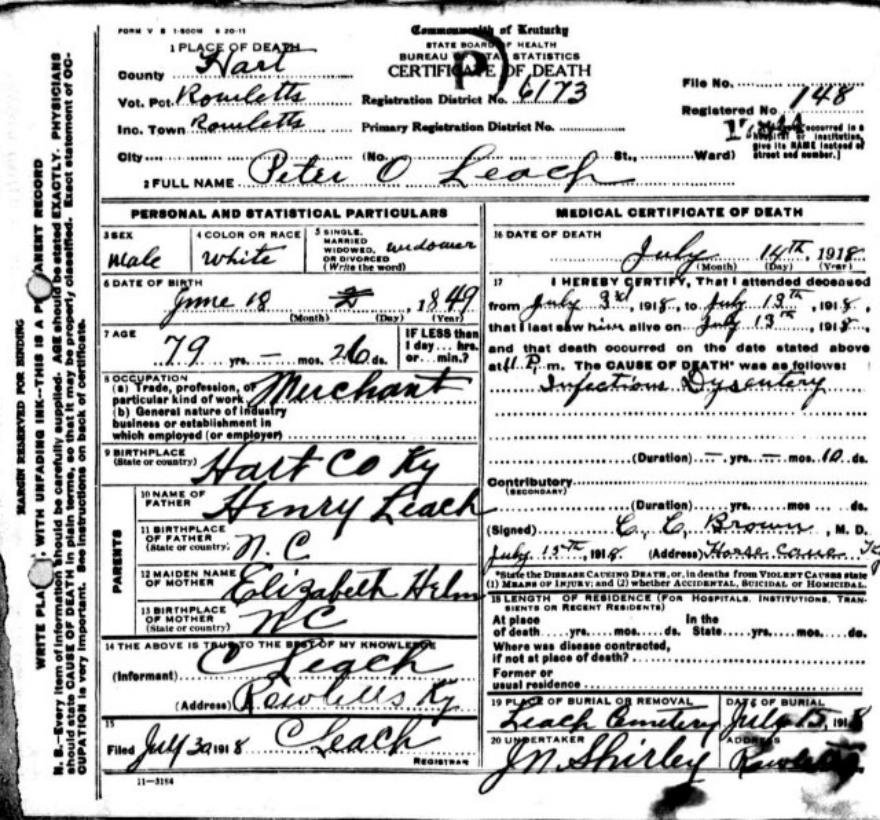 FORM V S 1-500M 6 20-11
Commonwealth of Kentucky
STATE BOARD OF HEALTH
BUREAU OF VITAL STATISTICS
CERTIFICATE OF DEATH
1 PLACE OF DEATH
County Hart
Vot. Pct. Rowletts
Registration District No. 6173
File No.
Registered No. 148
Inc. Town Rowletts
Primary Registration District No.
occurred in a hospital or institution, give its NAME instead of street and number.]
City (No. St., Ward)
2 FULL NAME Peter O Leach
PERSONAL AND STATISTICAL PARTICULARS
3 SEX
Male
4 COLOR OR RACE
White
5 SINGLE, MARRIED WIDOWED, OR DIVORCED (Write the word)
Widower
6 DATE OF BIRTH
June 18 1849
(Month) (Day) (Year)
7 AGE
79 yrs. — mos. 26 ds.
IF LESS than 1 day... hrs. or... min.?
8 OCCUPATION
(a) Trade, profession, or particular kind of work Merchant
(b) General nature of industry business or establishment in which employed (or employer)
9 BIRTHPLACE
(State or country) Hart Co Ky
PARENTS
10 NAME OF FATHER Henry Leach
11 BIRTHPLACE OF FATHER (State or country) N.C
12 MAIDEN NAME OF MOTHER Elizabeth Helm
13 BIRTHPLACE OF MOTHER (State or country) NC
14 THE ABOVE IS TRUE TO THE BEST OF MY KNOWLEDGE
(Informant) C Leach
(Address) Rowletts Ky
15
Filed July 30 1918 C Leach
REGISTRAR
11-3184
MEDICAL CERTIFICATE OF DEATH
16 DATE OF DEATH
July 14th, 1918
(Month) (Day) (Year)
17 I HEREBY CERTIFY, That I attended deceased
from July 3d, 1918, to July 13th, 1918,
that I last saw him alive on July 13th, 1918,
and that death occurred on the date stated above
at 11 P. m. The CAUSE OF DEATH* was as follows:
Infectious Dysentery
(Duration) — yrs. — mos. 10 ds.
Contributory
(SECONDARY)
(Duration) yrs. mos ds.
(Signed) C. C. Brown, M. D.
July 15th, 1918 (Address) Horse Cave Ky
*State the DISEASE CAUSING DEATH, or, in deaths from VIOLENT CAUSES state
(1) MEANS OF INJURY; and (2) whether ACCIDENTAL, SUICIDAL or HOMICIDAL.
18 LENGTH OF RESIDENCE (FOR HOSPITALS, INSTITUTIONS, TRANSIENTS OR RECENT RESIDENTS)
At place of death yrs. mos. ds. In the State yrs. mos. ds.
Where was disease contracted, if not at place of death?
Former or usual residence
19 PLACE OF BURIAL OR REMOVAL
Leach Cemetery
DATE OF BURIAL
July 15, 1918
20 UNDERTAKER
J N Shirley
ADDRESS
Rowletts
MARGIN RESERVED FOR BINDING
WRITE PLAINLY, WITH UNFADING INK--THIS IS A PERMANENT RECORD
N. B.--Every item of information should be carefully supplied. AGE should be stated EXACTLY. PHYSICIANS
should state CAUSE OF DEATH in plain terms, so that it may be properly classified. Exact statement of OC-
CUPATION is very important. See instructions on back of certificate.